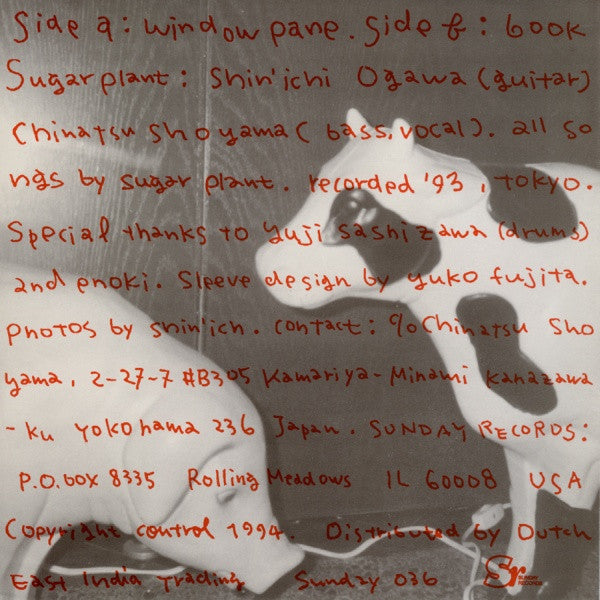 Side a: window pane. Side b: book
Sugar plant: Shin'ichi Ogawa (guitar)
Chinatsu Shoyama (bass, vocal). all so
ngs by sugar plant. recorded '93, tokyo.
Special thanks to yuji sashizawa (drums)
and enoki. Sleeve design by yuko fujita.
photos by shin'ich. contact: c/o Chinatsu Sho
yama, 2-27-7 #B305 Kamariya-Minami Kanazawa
-ku yokohama 236 Japan. SUNDAY RECORDS:
P.O. box 8335 Rolling Meadows IL 60008 USA
Copyright control 1994. Distributed by Dutch
East India Trading Sunday 036 Sr SUNDAY RECORDS